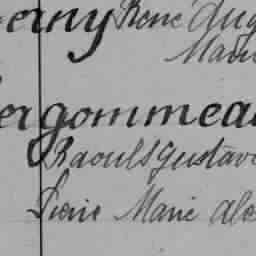 erny René Aug
Marie
ergommea
Raoul Gustav
Pierre Marie Ale